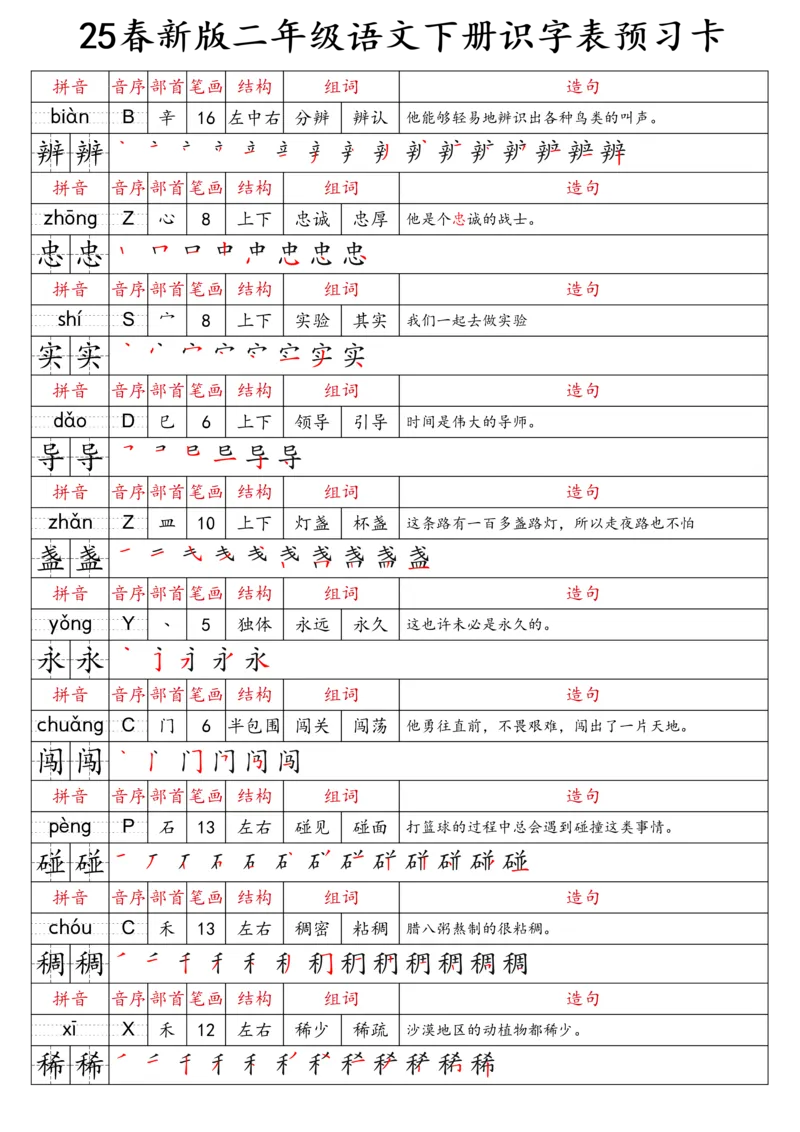 25春新版二年级语文下册识字表预习卡
拼音 音序 部首 笔画 结构 组词 造句
biàn B 辛 16 左中右 分辨 辨认 他能够轻易地辨识出各种鸟类的叫声。
辨 辨
拼音 音序 部首 笔画 结构 组词 造句
zhōng Z 心 8 上下 忠诚 忠厚 他是个忠诚的战士。
忠 忠
拼音 音序 部首 笔画 结构 组词 造句
shí S 宀 8 上下 实验 其实 我们一起去做实验
实 实
拼音 音序 部首 笔画 结构 组词 造句
dǎo D 巳 6 上下 领导 引导 时间是伟大的导师。
导 导
拼音 音序 部首 笔画 结构 组词 造句
zhǎn Z 皿 10 上下 灯盏 杯盏 这条路有一百多盏路灯，所以走夜路也不怕
盏 盏
拼音 音序 部首 笔画 结构 组词 造句
yǒng Y 丶 5 独体 永远 永久 这也许未必是永久的。
永 永
拼音 音序 部首 笔画 结构 组词 造句
chuǎng C 门 6 半包围 闯关 闯荡 他勇往直前，不畏艰难，闯出了一片天地。
闯 闯
拼音 音序 部首 笔画 结构 组词 造句
pèng P 石 13 左右 碰见 碰面 打篮球的过程中总会遇到碰撞这类事情。
碰 碰
拼音 音序 部首 笔画 结构 组词 造句
chóu C 禾 13 左右 稠密 粘稠 腊八粥熬制的很粘稠。
稠 稠
拼音 音序 部首 笔画 结构 组词 造句
xī X 禾 12 左右 稀少 稀疏 沙漠地区的动植物都稀少。
稀 稀